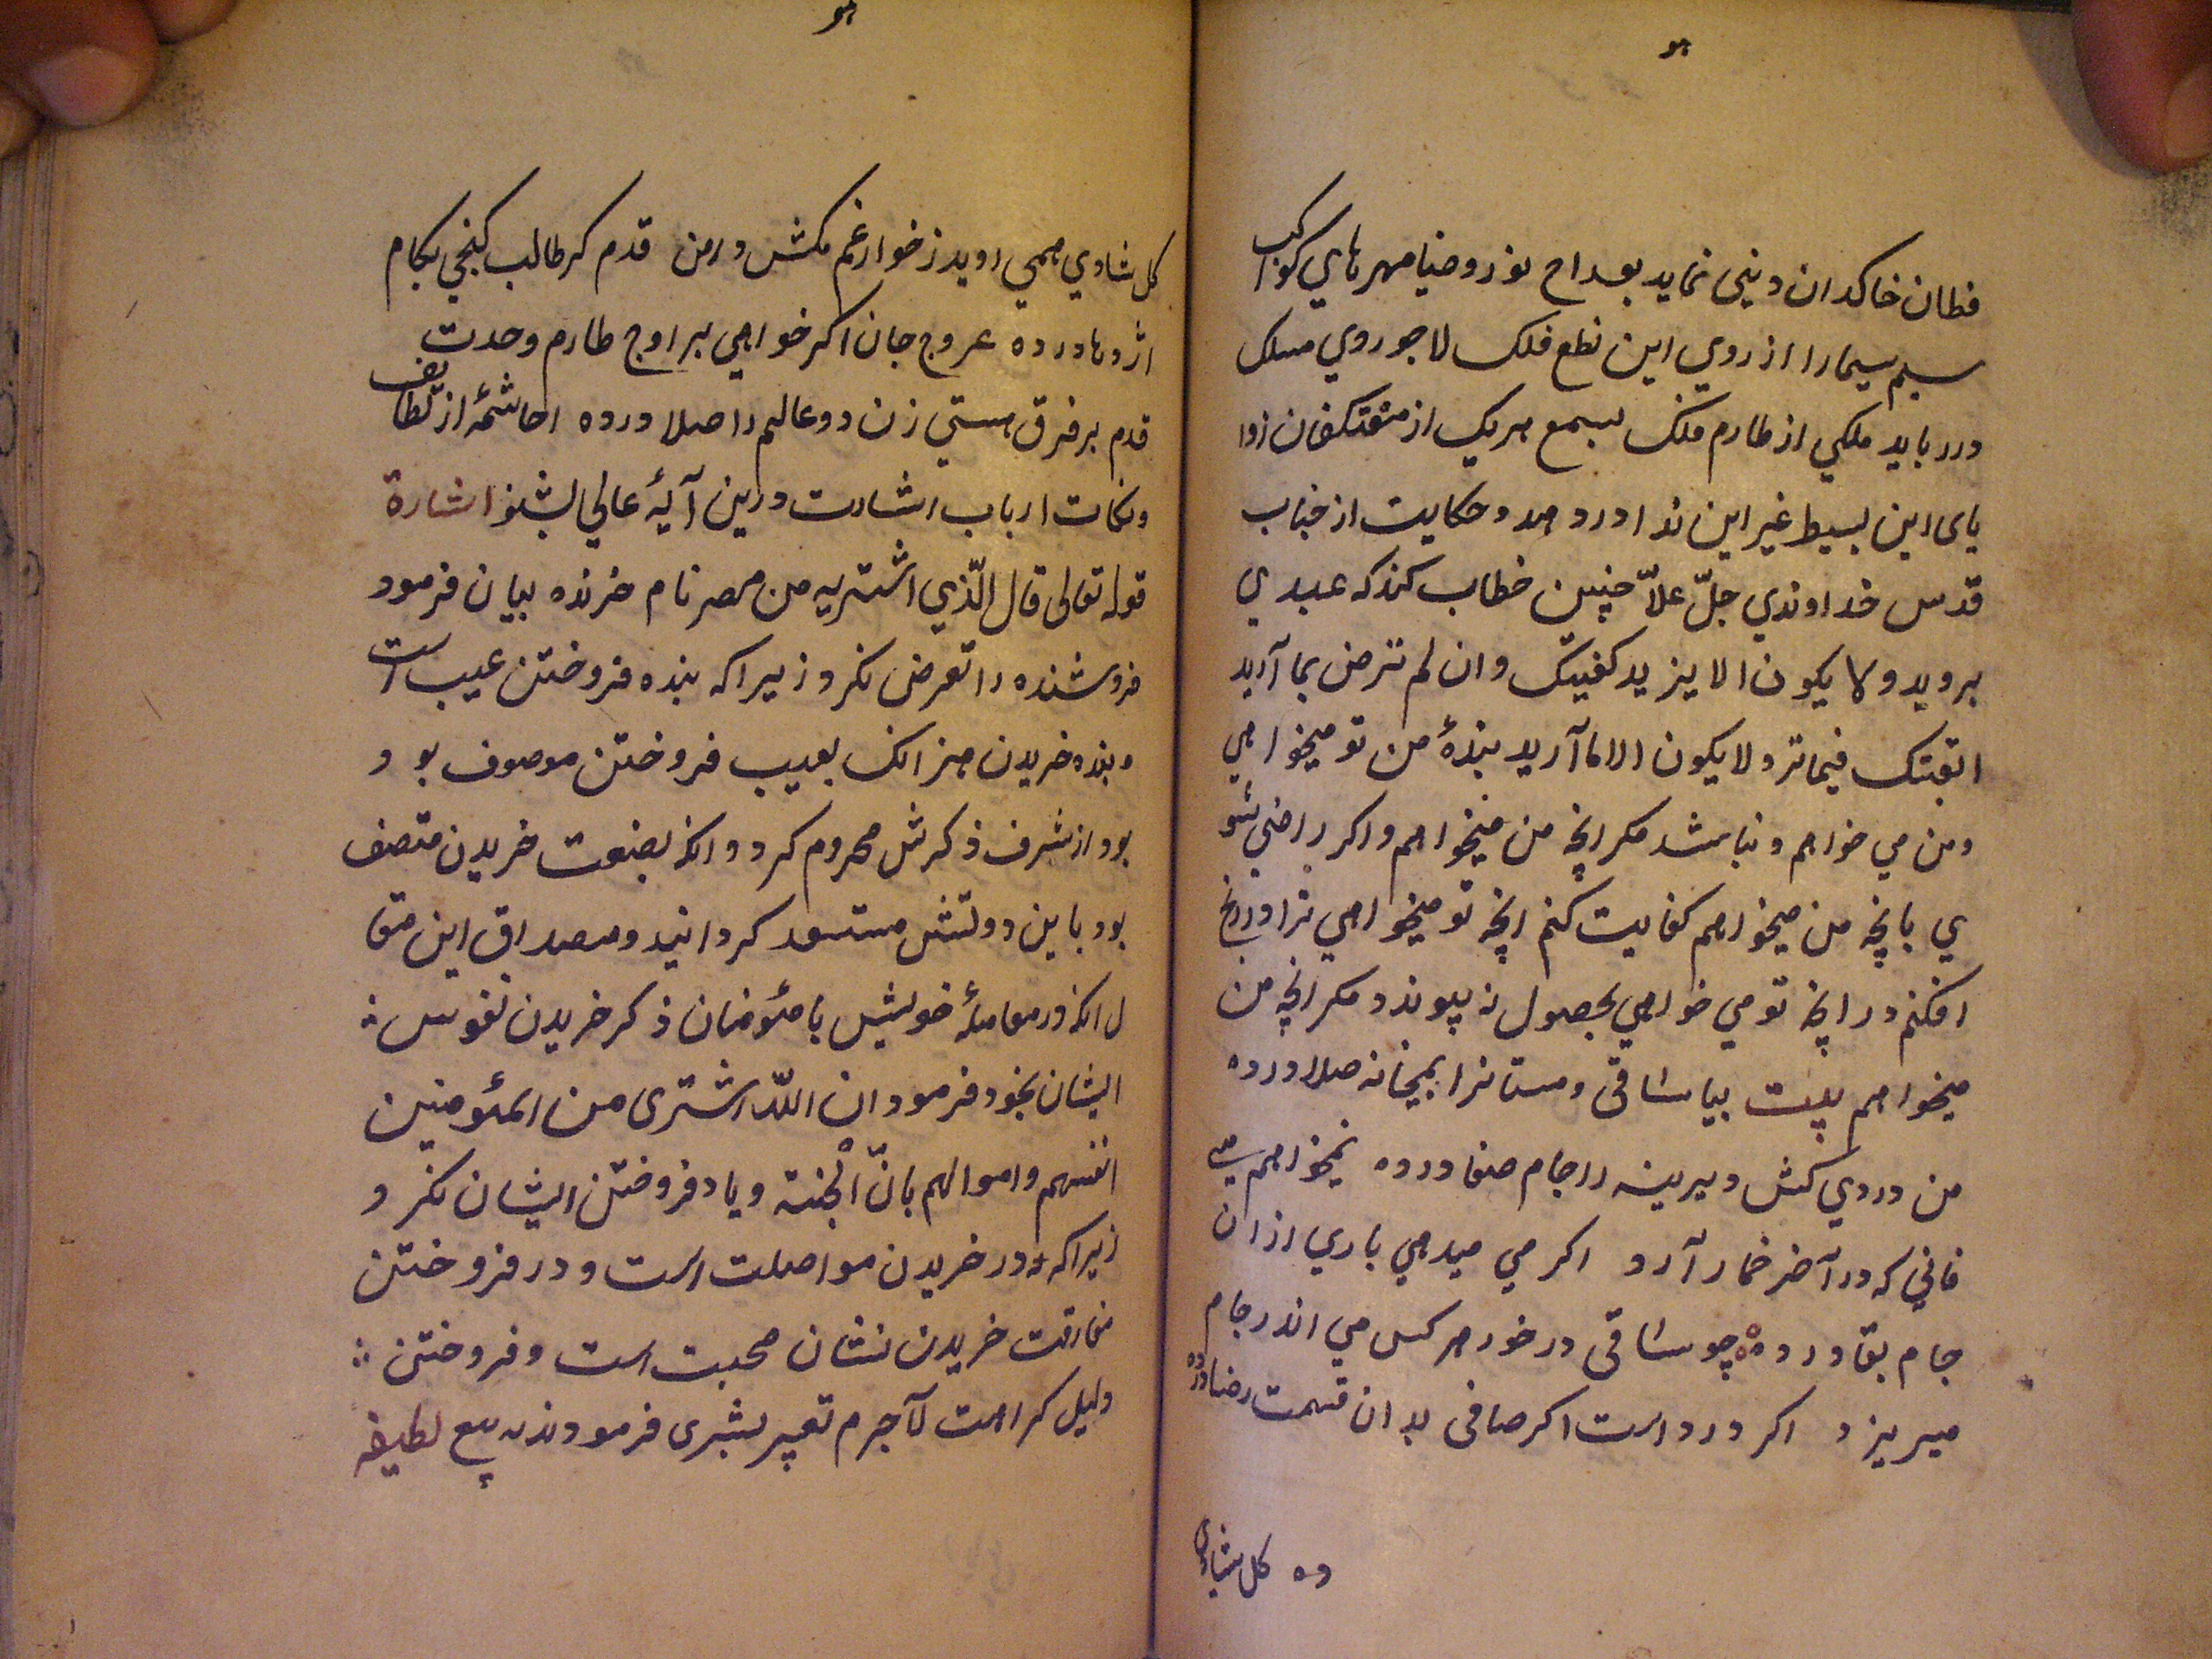 هو
فطان خاکدان دینی نماید بقداح نور و ضیا مهرهای کواکب
سیم سیما را از روی این نطع فلک لاجوردی مسلک
در رباید ملکی از طارم فلک بسمع هریک از معتکفان زوا
یای این بسیط غبر این ندا در دهد و حکایت از جناب
قدس خداوندی جلّ علاّ چنین خطاب کند که عبدی
بروید ولا یکون الا یزید کفیتک وان لم ترض بما آرید
اتعبتک فیما تر ولا یکون الا ما آرید بندهٔ من تو میخواهی
ومن می خواهم و نباشد مکر انچه من میخواهم و اکر راضی شو
ی بانچه من میخواهم کفایت کنم انچه تو میخواهی ترا در رنج
افکنم در انچه تو می خواهی بحصول نه پیوندد مکر انچه من
میخواهم بیت بیا ساقی و مستانرا بمیخانه صلا در ده
من دردی کش دیرینه را جام صفا در ده نمیخواهم می
فانی که در آخر خمار آرد اکر می میدهی باری ازان
جام بقا در ده چو ساقی درخور هرکس می اندر جام
میریزد اکر درد است اکر صافی بدان قسمت رضا در ده
ده کل شادی
هو
کل شادی همی روید ز خوار غم مکش دامن قدم کر طالب کنجی بکام
اژدها در ده عروج جان اکر خواهی بر اوج طارم وحدت
قدم بر فرق هستی زن دو عالم را صلا در ده اما شمهٔ از لطایف
و نکات ارباب اشارت درین آیهٔ عالی بشنو اشارة
قوله تعالی قال الّذی اشتریه من مصر نام خرنده بیان فرمود
فروشنده را تعرض نکرد زیرا که بنده فروختن عیب است
و بنده خریدن هنر انک بعیب فروختن موصوف بو د
بود از شرف ذکرش محروم کرد و انکه بصنعت خریدن متصف
بود باین دولتش مستسعد کردانید و مصداق این مقا
ل انکه در معاملهٔ خویش با مئومنان ذکر خریدن نفوس
ایشان بخود فرمود ان اللّه اشتری من المئومنین
انفسهم و اموالهم بانّ الْجنة و یاد فروختن ایشان نکر د
زیرا که در خریدن مواصلت است و در فروختن
مفارقت خریدن نشان محبت است و فروختن
دلیل کراهت لآجرم بشری فرمودند نه بیع لطیفه